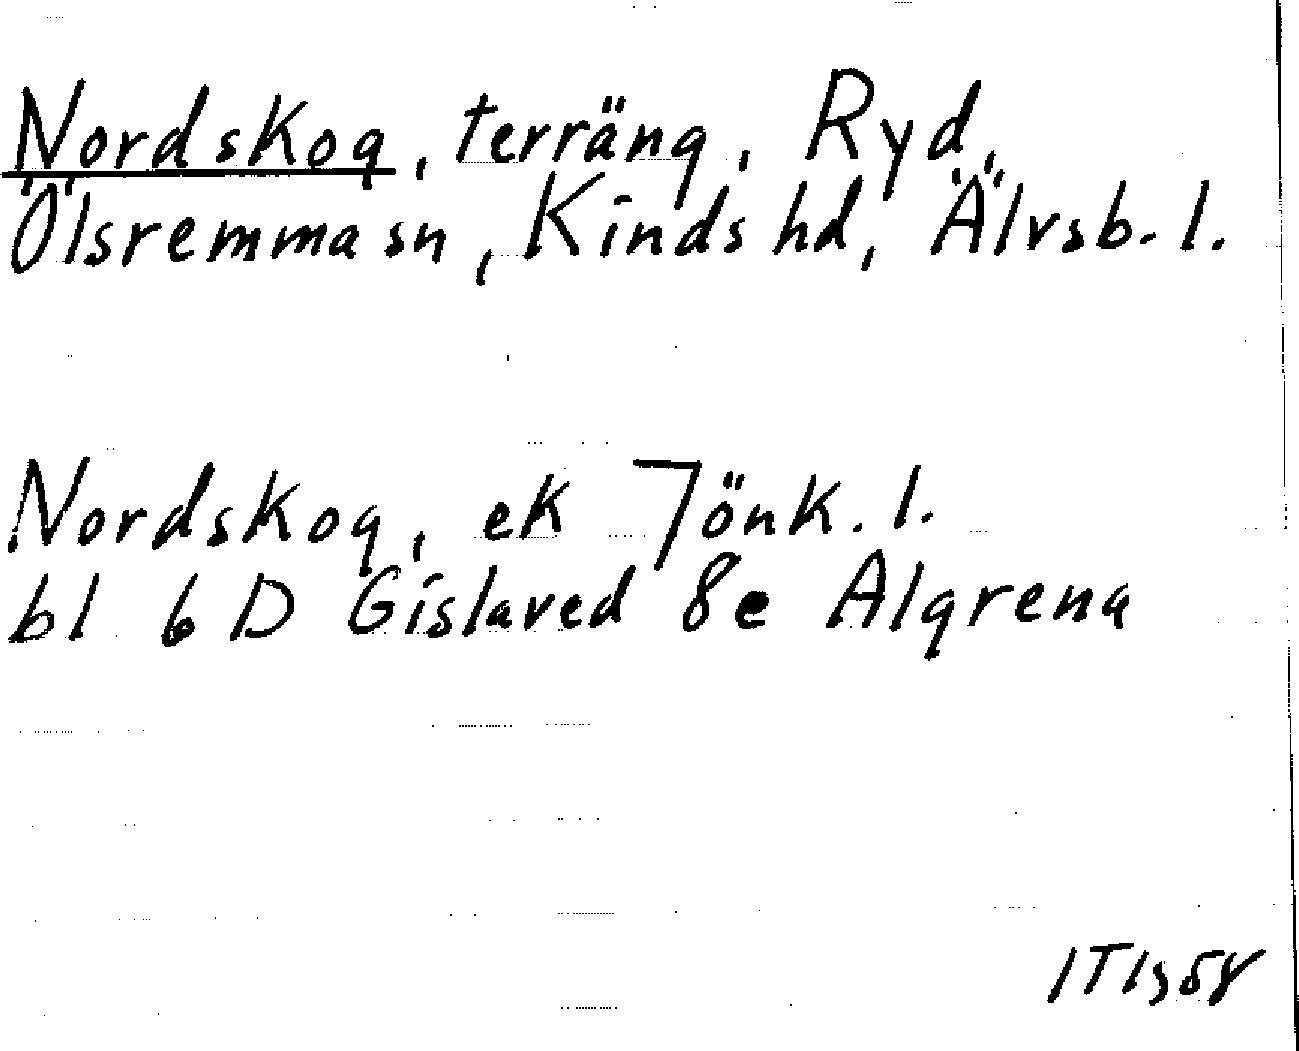 Nordskog, terräng, Ryd,
Ölsremma sn, Kinds hd, Älvsb. l.
Nordskog, ek Jönk. l.
bl 6 D Gislaved 8e Algrena